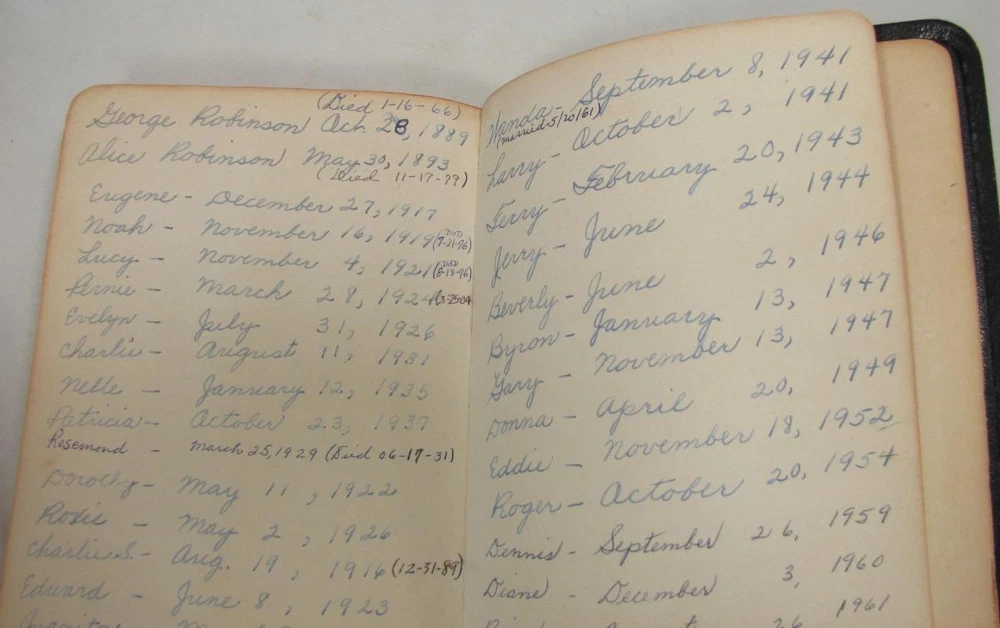 (Died 1-16-66)
George Robinson Oct. 28, 1889
Alice Robinson May 30, 1893
(Died 11-17-79)
Eugene - December 27, 1917
Noah - November 16, 1919 (DIED 7-21-96)
Lucy - November 4, 1921 (DIED 8-13-96)
Pernie - March 28, 1924
Evelyn - July 31, 1926
Charlie - August 11, 1931
Nelle - January 12, 1935
Patricia - October 23, 1937
Rosemond - March 25, 1929 (Died 06-17-31)
Dorothy - May 11, 1922
Roxie - May 2, 1926
Charlie S. - Aug. 19, 1916 (12-31-89)
Edward - June 8, 1923
Wanda - September 8, 1941
(married 5/20/61)
Larry - October 2, 1941
Terry - February 20, 1943
Jerry - June 24, 1944
Beverly - June 2, 1946
Byron - January 13, 1947
Gary - November 13, 1947
Donna - April 20, 1949
Eddie - November 18, 1952
Roger - October 20, 1954
Dennis - September 26, 1959
Diane - December 3, 1960
26 1961